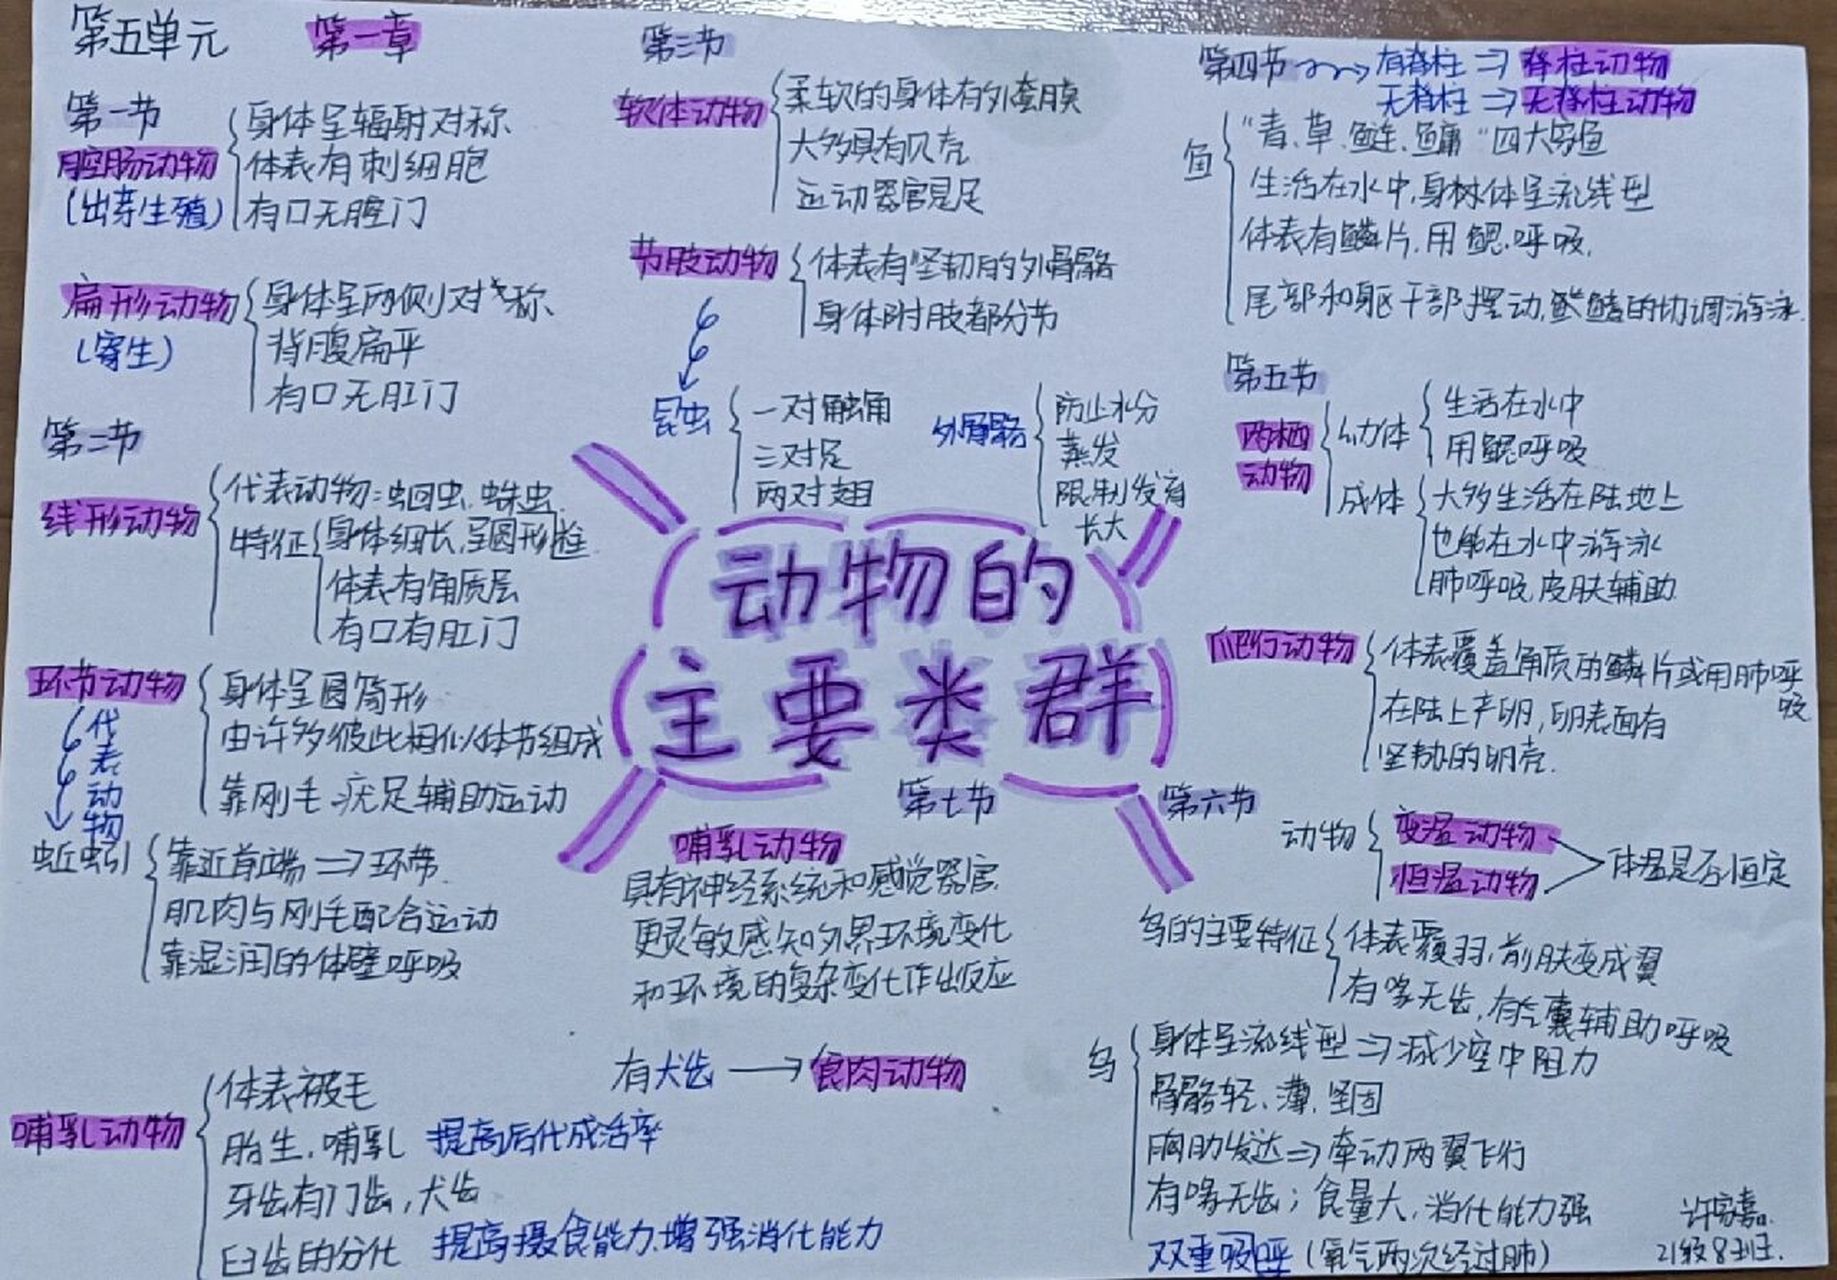 第五单元 第一章
第一节
腔肠动物
(出芽生殖)
身体呈辐射对称
体表有刺细胞
有口无肛门
扁形动物
(寄生)
身体呈两侧对称
背腹扁平
有口无肛门
第二节
线形动物
代表动物:蛔虫、蛲虫
特征
身体细长,呈圆形柱
体表有角质层
有口有肛门
环节动物
身体呈圆筒形
由许多彼此相似体节组成
靠刚毛、疣足辅助运动
代表动物
蚯蚓
靠近首端⇒环带
肌肉与刚毛配合运动
靠湿润的体壁呼吸
第三节
软体动物
柔软的身体有外套膜
大多具有贝壳
运动器官是足
节肢动物
体表有坚韧的外骨骼
身体附肢都分节
昆虫
一对触角
三对足
两对翅
外骨骼
防止水分
蒸发
限制发育
长大
动物的
主要类群
第四节
有脊柱⇒脊柱动物
无脊柱⇒无脊柱动物
鱼
“青、草、鲢、鳙“四大家鱼
生活在水中,身体呈流线型
体表有鳞片,用鳃呼吸,
尾部和躯干部摆动,鳍的协调游泳.
第五节
两栖
动物
幼体
生活在水中
用鳃呼吸
成体
大多生活在陆地上
也能在水中游泳
肺呼吸,皮肤辅助
爬行动物
体表覆盖角质的鳞片或用肺呼
吸
在陆上产卵,卵表面有
坚韧的卵壳.
第六节
动物
变温动物
恒温动物
体温是否恒定
鸟的主要特征
体表覆羽,前肢变成翼
有喙无齿,有气囊辅助呼吸
鸟
身体呈流线型⇒减少空中阻力
骨骼轻、薄、坚固
胸肌发达⇒牵动两翼飞行
有喙无齿;食量大,消化能力强
双重吸呼(氧气两次经过肺)
第七节
哺乳动物
具有神经系统和感觉器官
更灵敏感知外界环境变化
和环境的复杂变化作出反应
有犬齿→食肉动物
哺乳动物
体表被毛
胎生、哺乳 提高后代成活率
牙齿有门齿,犬齿
臼齿的分化 提高摄食能力、增强消化能力
21级8班